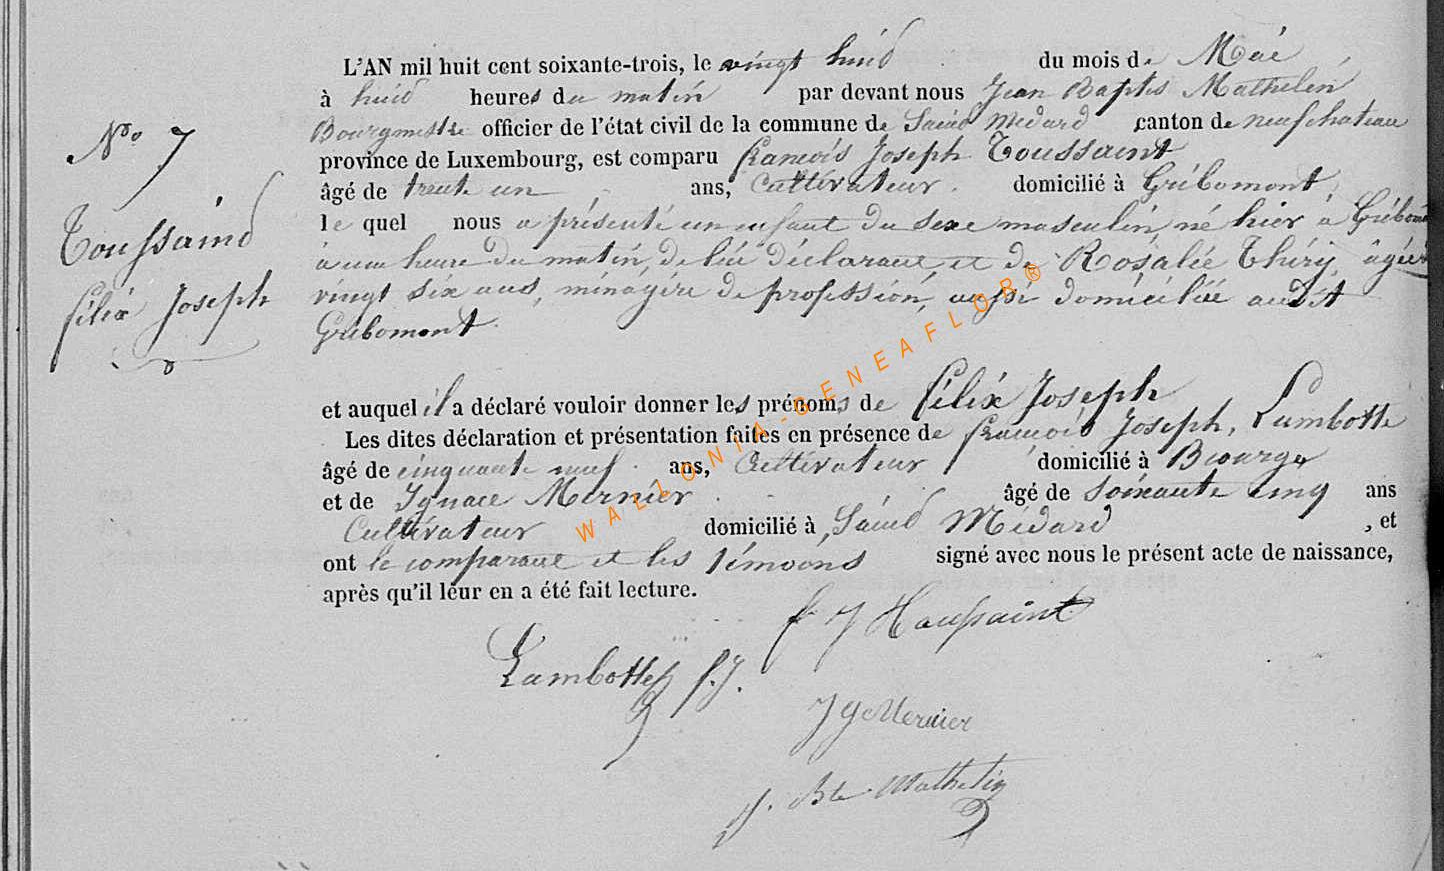 L'AN mil huit cent soixante-trois, le vingt huid du mois de Mai
à huid heures du matin par devant nous Jean Baptis Mathelin
Bourgmestre officier de l'état civil de la commune de Saind Medard canton de neufchateau
N° 7
province de Luxembourg, est comparu francois Joseph Toussaint
âgé de trente un ans, Cultivateur domicilié à Gribomont
Toussaind
le quel nous a présenté un enfant du sexe masculin né hier à
à une heure du matin, de lui déclarant et de Rosalie Thiry, âgée
félix Joseph
vingt six ans, ménagère de profession, aussi domiciliée audit
Gribomont
et auquel il a déclaré vouloir donner les prénoms de félix Joseph
Les dites déclaration et présentation faites en présence de francois Joseph, Lambotte
âgé de cinquante neuf ans, Cultivateur domicilié à
et de Ignace Mernier âgé de soixante cinq ans
Cultivateur domicilié à Saind Médard , et
ont le comparant et les témoins signé avec nous le présent acte de naissance,
après qu'il leur en a été fait lecture.
f J Toussaint
Lambotte f. J.
J g Mernier
J. Bte Mathelin
WALLONIA-GENEAFLOR®